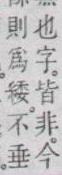 也字。皆非。今
則爲緌。不垂